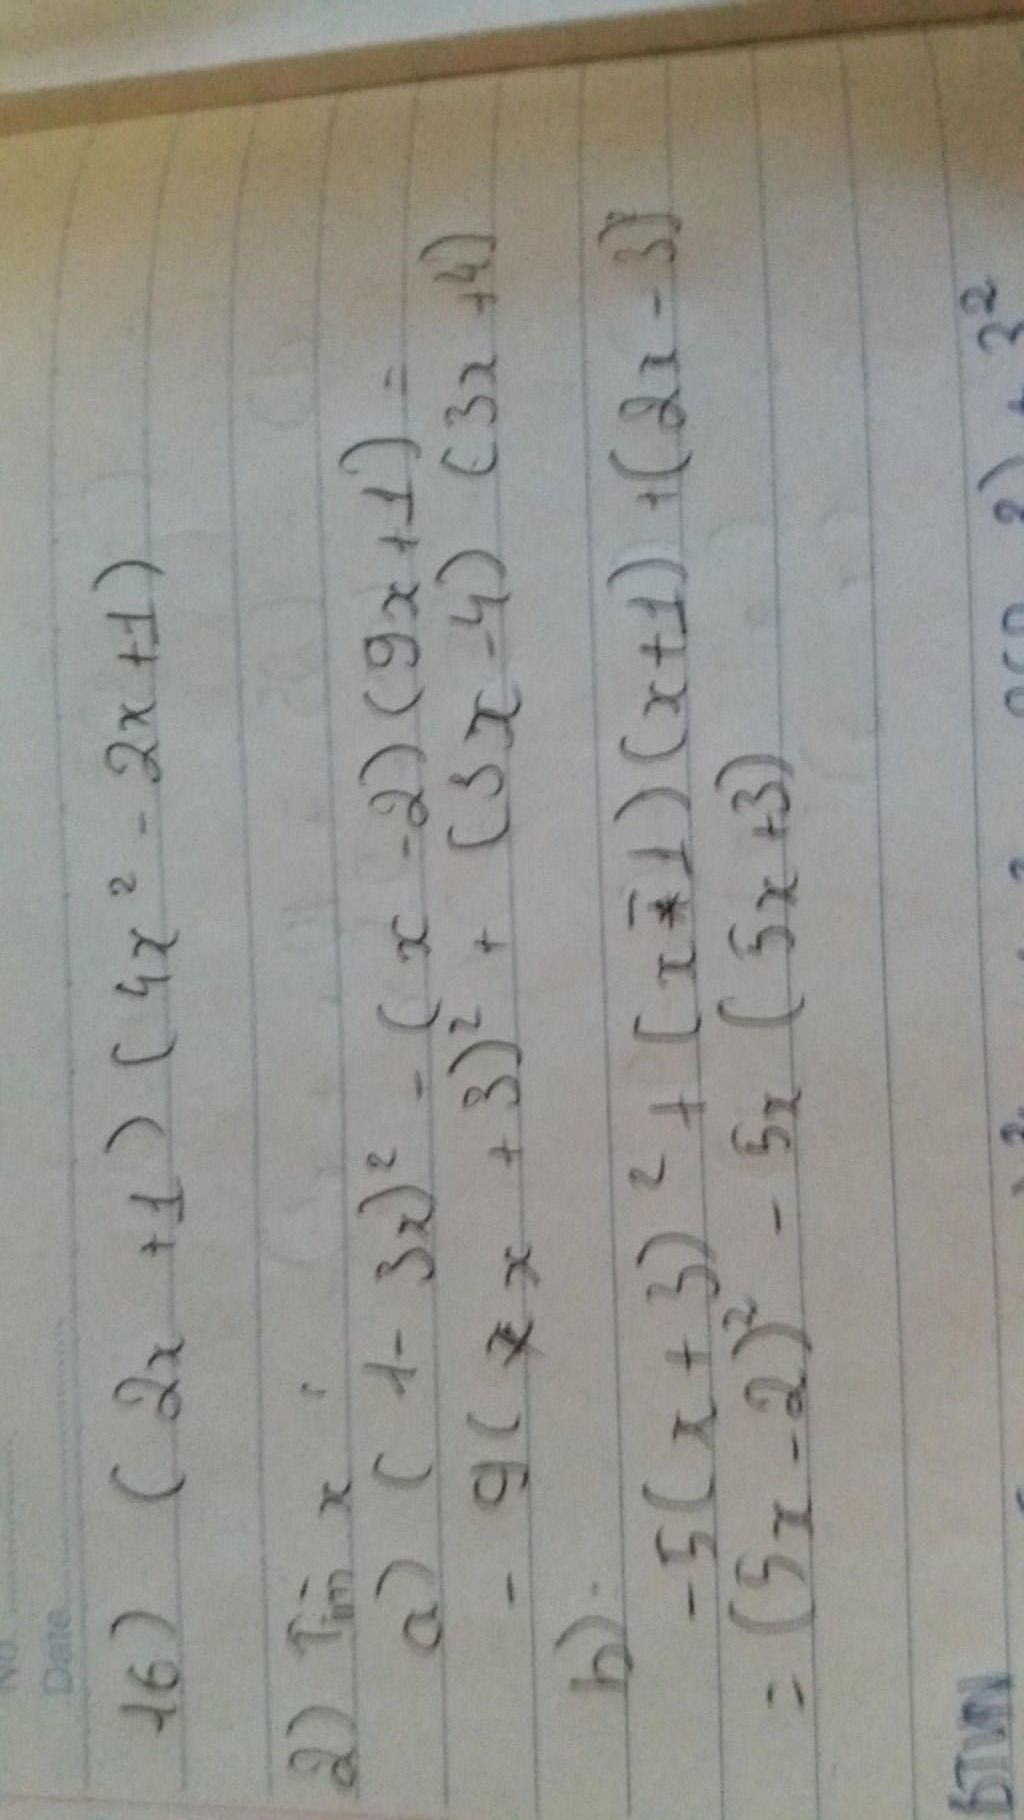 No
Date
16) (2x + 1) (4x² - 2x + 1)
2) Tìm x
a) (1 - 3x)² - (x - 2) (9x + 1) =
- 9(x + 3)² + (3x - 4) (3x + 4)
b)
-5(x + 3)² + (x - 1) (x + 1) + (2x - 3)²
= (5x - 2)² - 5x (5x + 3)
BTVN